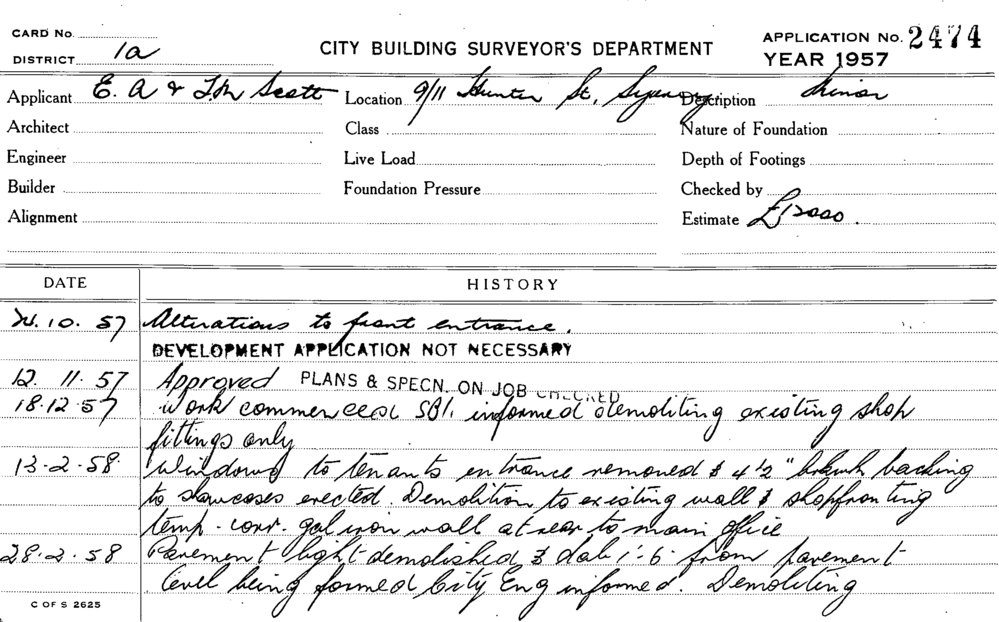 CARD No.
DISTRICT 1a
CITY BUILDING SURVEYOR'S DEPARTMENT
APPLICATION No. 2474
YEAR 1957
Applicant E. A & I.M Scott Location 9/11 Hunter St, Sydney Description Minor
Architect Class Nature of Foundation
Engineer Live Load Depth of Footings
Builder Foundation Pressure Checked by
Alignment Estimate
DATE HISTORY
10. 57 Alterations to front entrance.
DEVELOPMENT APPLICATION NOT NECESSARY
12. 11. 57 Approved PLANS & SPECN. ON JOB CHECKED
18.12.57 Work commenced informed demoliting existing shop
fittings only
13.2.58. Windows to tenants entrance removed & 4½" backing
to showcases erected. Demolition to existing wall & shopfronting
temp. corr. gal iron wall at rear to main office
28.2.58 Pavement light demolished & slab 1'.6" from pavement
level being formed City Eng informed. Demoliting
C OF S 2625